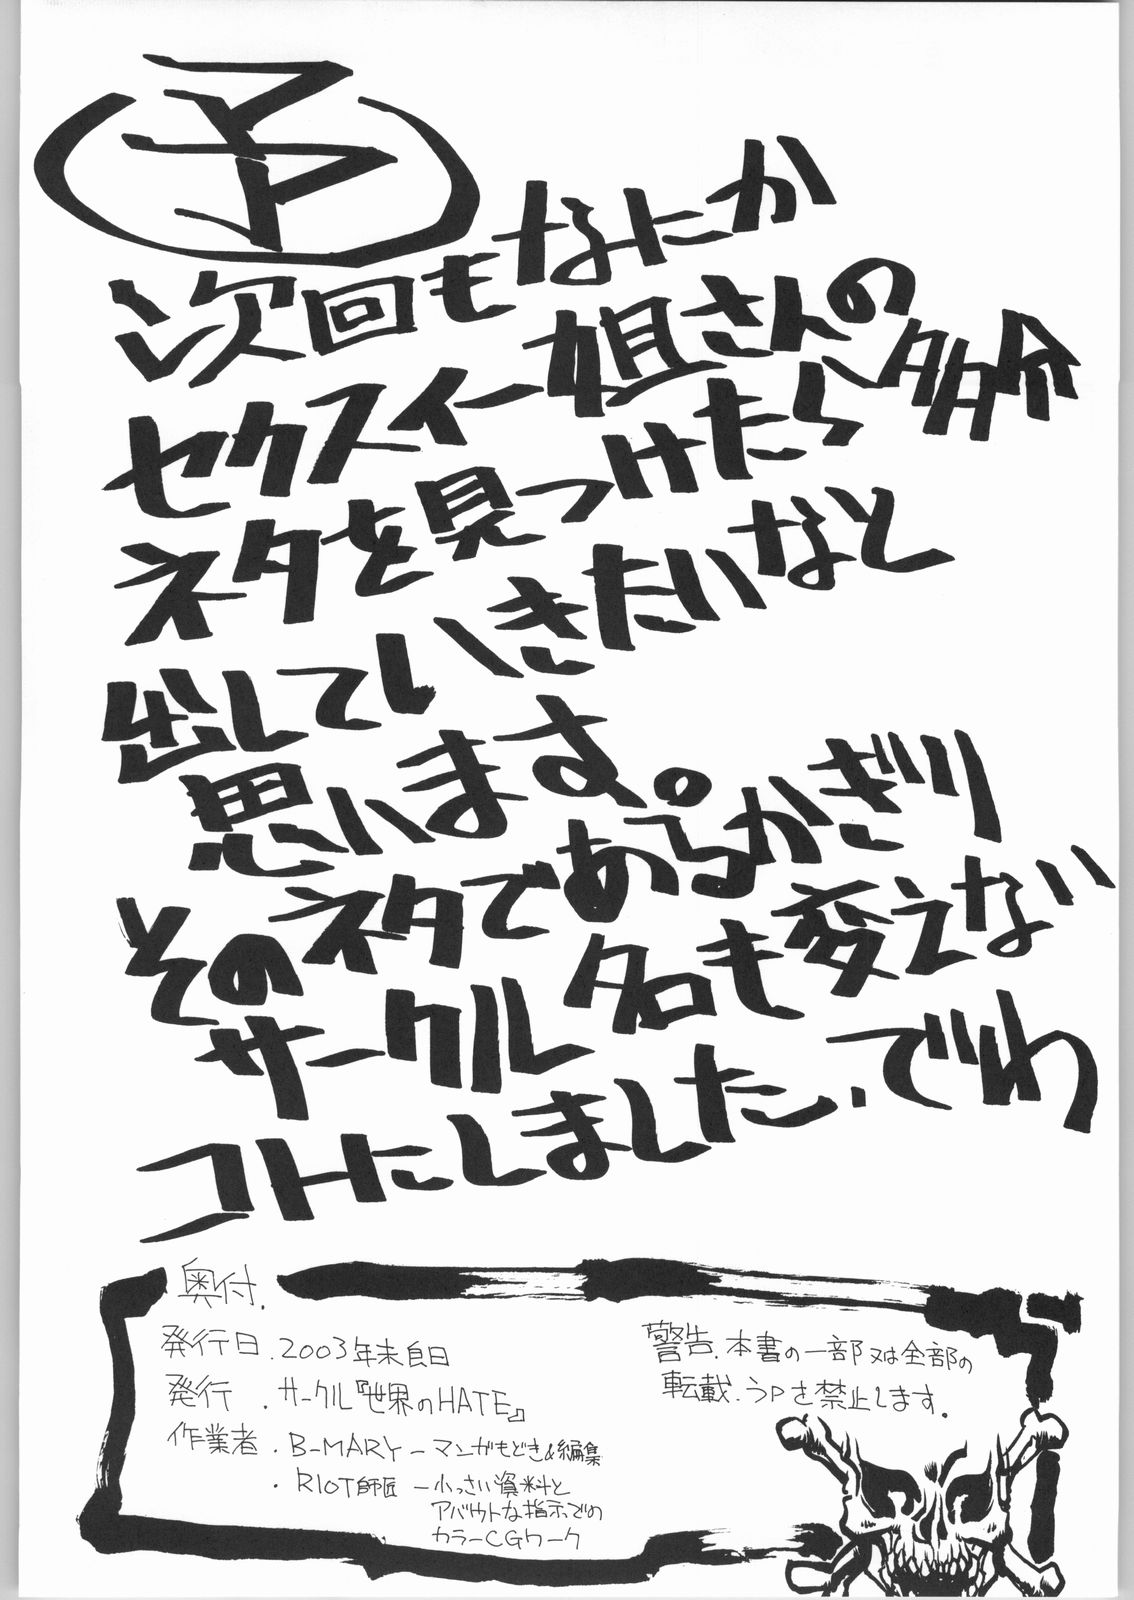 予
次回もなにか
セクスィー姐さんの多分
ネタを見つけたら
出していきたいなと
思います。
そのネタであるかぎり
サークル名も変えない
コトにしました、でわ
奥付.
発行日.2003年末良日
発行.サークル『世界のHATE』
作業者.B-MARY-マンガもどき&編集
・RIOT師匠-小っさい資料と
アバウトな指示での
カラーCGワーク
警告.本書の一部又は全部の
転載.うPを禁止します.